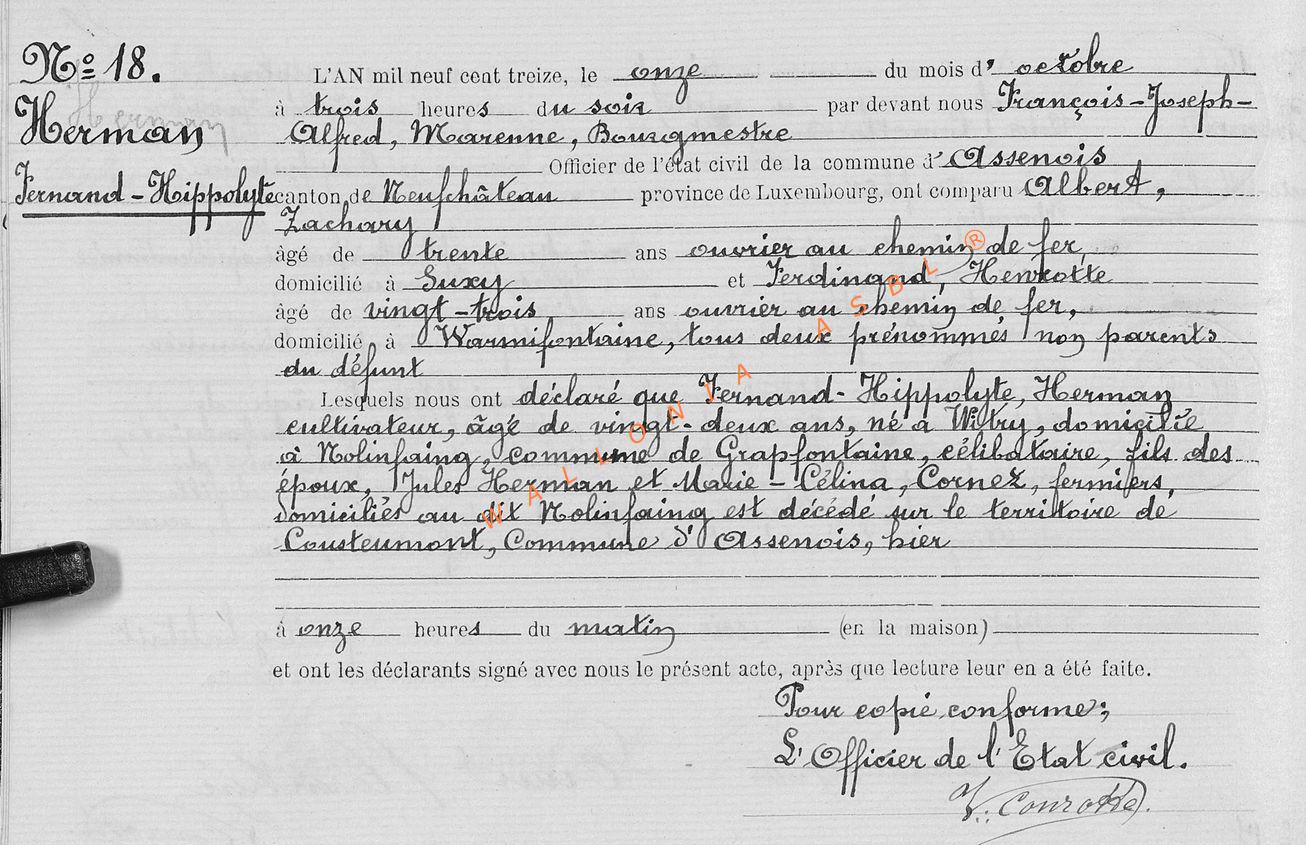 Nº 18.
Herman
Herman
Fernand-Hippolyte
L'AN mil neuf cent treize, le onze du mois d'octobre
à trois heures du soir par devant nous François-Joseph-
Alfred, Marenne, Bourgmestre
Officier de l'état civil de la commune d'Assenois
canton de Neufchâteau province de Luxembourg, ont comparu Albert,
Zachary
âgé de trente ans ouvrier au chemin de fer,
domicilié à Suxy et Ferdinand, Henrotte
âgé de vingt-trois ans ouvrier au chemin de fer,
domicilié à Warmifontaine, tous deux prénommés non parents
du défunt
Lesquels nous ont déclaré que Fernand-Hippolyte, Herman
cultivateur, âgé de vingt-deux ans, né à Witry, domicilié
à Nolinfaing, commune de Grapfontaine, célibataire, fils des
époux, Jules Herman et Marie-Célina, Cornez, fermiers,
domiciliés au dit Nolinfaing est décédé sur le territoire de
Cousteumont, Commune d'Assenois, hier
à onze heures du matin (en la maison)
et ont les déclarants signé avec nous le présent acte, après que lecture leur en a été faite.
Pour copie conforme;
L'Officier de l'Etat civil.
WALLONIA ASBL ®